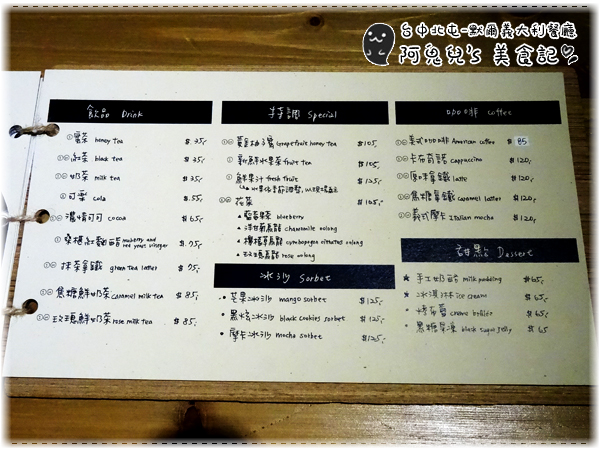 台中北屯-默爾義大利餐廳
阿兒兒's 美食記
飲品 Drink
蜜茶 honey tea $35.
紅茶 black tea $35.
奶茶 milk tea $35.
可樂 cola $55.
濃情可可 cocoa $65.
桑椹紅麴醋 mulberry and red yeast vinegar $75.
抹茶拿鐵 green tea latte $75.
焦糖鮮奶茶 caramel milk tea $85.
玫瑰鮮奶茶 rose milk tea $85.
特調 Special
黃金柚子蜜 Grapefruit honey tea $105.
新鮮水果茶 fruit tea $105.
鮮果汁 fresh fruit $125.
花茶 $105.
▲藍莓果 blueberry
▲洋甘菊 chamomile oolong
▲檸檬草烏龍 cymbopogon citratus oolong
▲玫瑰烏龍 rose oolong
冰沙 Sorbet
• 芒果冰沙 mango sorbet $125.
• 黑炫冰沙 black cookies sorbet $125.
• 摩卡冰沙 mocha sorbet $125.
咖啡 coffee
美式咖啡 American coffee $85
卡布奇諾 cappuccino $120.
原味拿鐵 latte $120.
焦糖拿鐵 caramel latte $120.
義式摩卡 Italian mocha $120.
甜點 Dessert
★ 手工奶酪 milk pudding $65.
★ 冰淇淋 ice cream $65.
• 烤布蕾 $65.
• 黑糖果凍 black sugar jelly $65